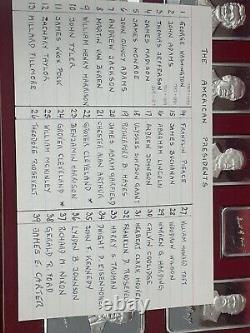 THE AMERICAN PRESIDENTS
1 GEORGE WASHINGTON
2 JOHN ADAMS
3 THOMAS JEFFERSON
4 JAMES MADISON
5 JAMES MONROE
6 JOHN QUINCY ADAMS
7 ANDREW JACKSON
8 MARTIN VAN BUREN
9 WILLIAM HENRY HARRISON
10 JOHN TYLER
11 JAMES KNOX POLK
12 ZACHARY TAYLOR
13 MILLARD FILLMORE
14 FRANKLIN PIERCE
15 JAMES BUCHANAN
16 ABRAHAM LINCOLN
17 ANDREW JOHNSON
18 ULYSSES SIMPSON GRANT
19 RUTHERFORD B HAYES
20 JAMES ABRAM GARFIELD
21 CHESTER A ARTHUR
22 GROVER CLEVELAND
23 BENJAMIN HARRISON
24 GROVER CLEVELAND
25 WILLIAM McKINLEY
26 THEODORE ROOSEVELT
27 WILLIAM HOWARD TAFT
28 WOODROW WILSON
29 WARREN G. HARDING
30 CALVIN COOLIDGE
31 HERBERT CLARK HOOVER
32 FRANKLIN D. ROOSEVELT
33 HARRY S TRUMAN
34 DWIGHT D. EISENHOWER
35 JOHN F KENNEDY
36 LYNDON B JOHNSON
37 RICHARD M NIXON
38 GERALD R FORD
39 JAMES E CARTER